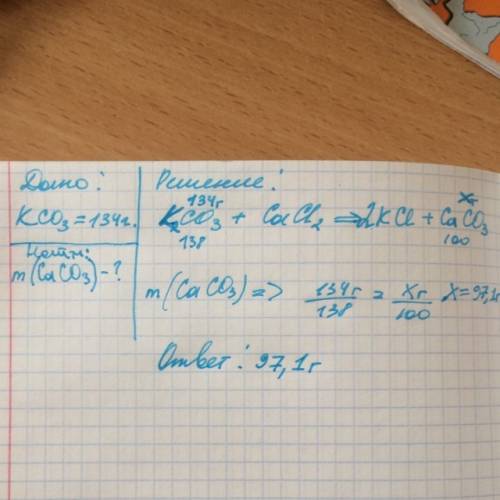 Дано:
KCO₃ = 134г.
Найти:
m(CaCO₃) - ?
Решение:
134г xг
K₂CO₃ + CaCl₂ => 2KCl + CaCO₃
138 100
m(CaCO₃) => 134г/138 = Xг/100 X = 97,1г
Ответ: 97,1г